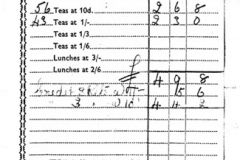 56 Teas at 10d. 2 6 8
43 Teas at 1/- 2 3 0
Teas at 1/3
Teas at 1/6
Lunches at 3/-
Lunches at 2/6
£ 4 9 8
15 6
3
4 4 2